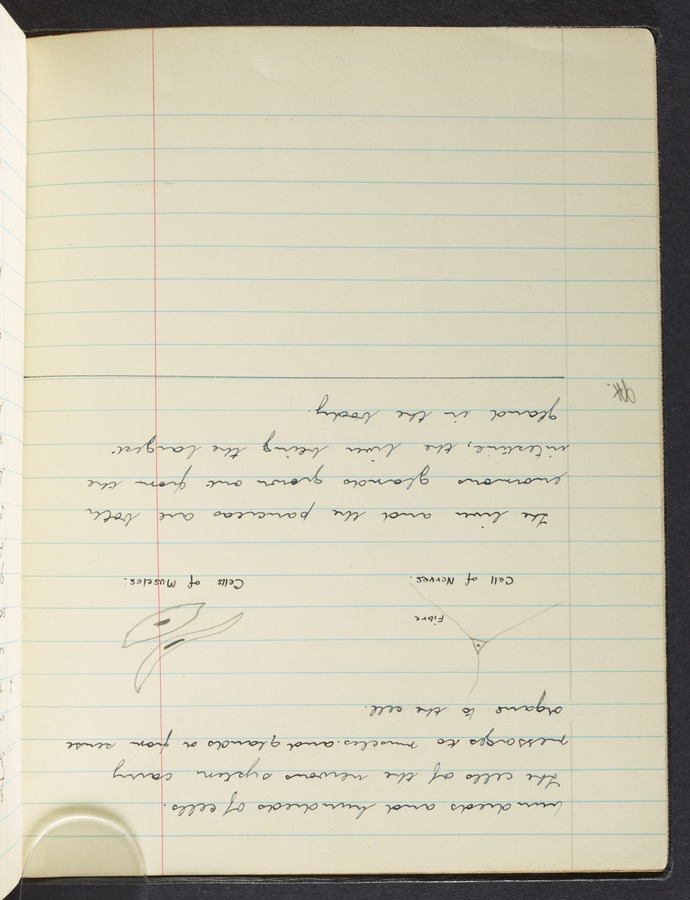 hundreds and hundreds of cells.
The cells of the nervous system carry
messages to muscles and glands or from sense
organs to the cell.
Fibre
Cell of Nerves.
Cells of Muscles.
The liver and the pancreas are both
enormous glands grown out from the
intestine, the liver being the largest
gland in the body.